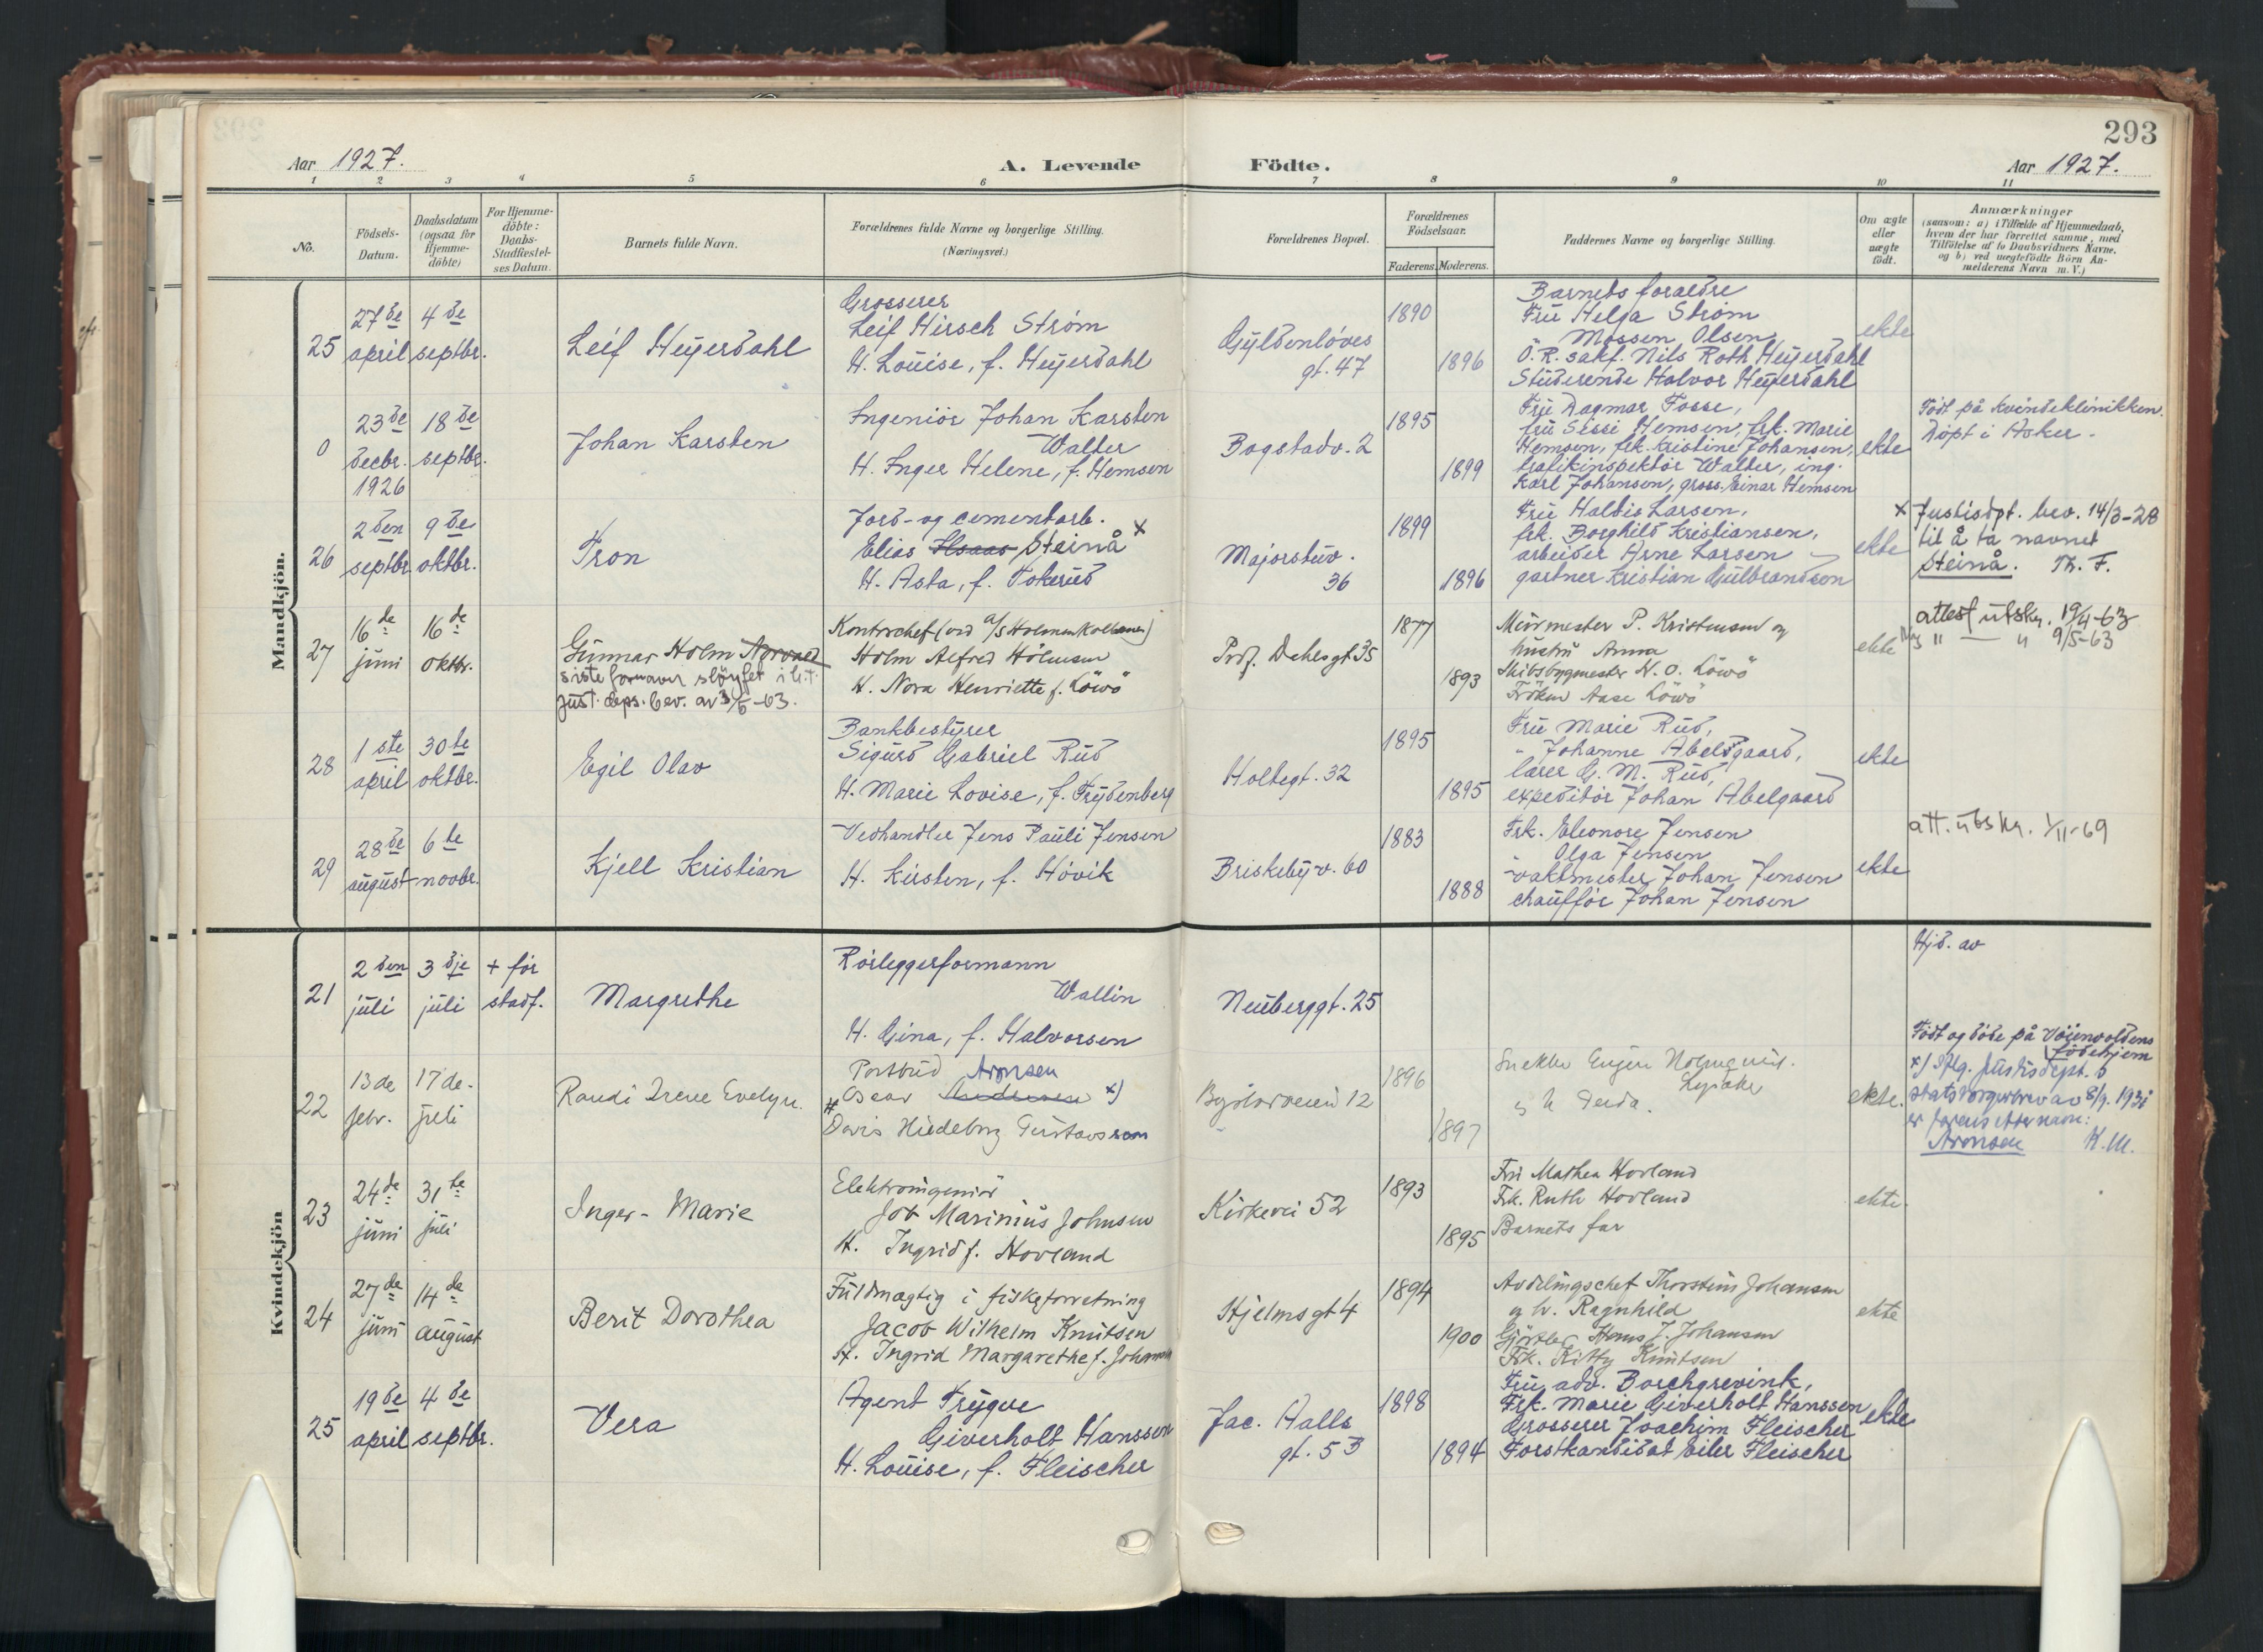 293
Aar 1927.
A. Levende Födte.
Aar 1927.
1 2 3 4 5 6 7 8 9 10 11
No.
Födsels-
Datum.
Daabsdatum
(ogsaa for
Hjemme-
döbte)
For Hjemme-
döbte:
Daabs-
Stadfæstel-
ses Datum.
Barnets fulde Navn.
Forældrenes fulde Navne og borgerlige Stilling.
(Næringsvei.)
Forældrenes Bopæl.
Forældrenes
Födselsaar.
Faderens. Moderens.
Faddernes Navne og borgerlige Stilling.
Om ægte
eller
uægte
födt.
Anmærkninger
(saasom: a) i Tilfælde af Hjemmedaab,
hvem der har forrettet samme, med
Tilföielse af to Daabsvidners Navne,
og b) ved uægtefödte Börn An-
melderens Navn m. V.)
Mandkjön.
25
27de
april
4de
septbr.
Leif Heyerdahl
Grosserer
Leif Hirsch Strøm
H. Louise, f. Heyerdahl
Gyldenløves
gt. 47
1890
1896
Barnets foreldre
Fru Helga Strøm
Mossen Olsen
O.R. sakf. Nils Roth Heyerdahl
Studerende Halvor Heyerdahl
ekte
0
23de
decbr.
1926
18de
septbr.
Johan Karsten
Ingeniør Johan Karsten
Walter
H. Inger Helene, f. Hemsen
Bogstadv. 2
1895
1899
Fru Dagmar Fosse,
fru Sessi Hemsen, frk. Marie
Hemsen, frk. Kristine Johansen,
trafikinspektør Walter, ing.
Karl Johansen, gross. Einar Hemsen
ekte
Født på Kvindeklinikken.
Døpt i Asker.
26
2den
septbr
9de
oktbr.
Tron
Jord- og cementarb.
Elias Isaas Steinå x
H. Asta, f. Tokerud
Majorstuv.
36
1899
1896
Fru Haldis Larsen,
frk. Borghild Kristiansen,
arbeider Arne Larsen
gartner Kristian Gulbrandsen
ekte
x Justisdpt. bev. 14/3-28
til å ta navnet
Steinå. Th. F.
27
16de
juni
16de
oktbr.
Gunnar Holm Norvald
siste fornavn sløyfet i h.t.
just. deps. bev. av 3/5-63.
Kontorchef (ved A/S Holmenkollbanen)
Holm Alfred Holmsen
H. Nora Henriette f. Löwö
Prof. Dahls gt 35
1877
1893
Murmester P. Kristensen og
hustru Anna
Skibsbygmester N. O. Löwö
Frøken Aase Löwö
ekte
attest utskr. 19/4-63
Ny " — " 9/5-63
28
1ste
april
30te
oktbr.
Egil Olav
Bankbestyrer
Sigurd Gabriel Rud
H. Marie Lovise, f. Frydenberg
Holtegt. 32
1895
1895
Fru Marie Rud,
" Johanne Abelsgaard,
lærer G. M. Rud,
expeditør Johan Abelgaard
ekte
29
28de
august
6te
novbr.
Kjell Kristian
Vedhandler Jens Pauli Jensen
H. Kirsten, f. Høvik
Briskebyv. 60
1883
1888
Frk. Eleonore Jensen
" Olga Jensen
vaktmester Johan Jensen
chauffør Johan Jensen
ekte
att. utskr. 1/11-69
Kvindekjön
21
2den
juli
3dje
juli
+ før
stadf.
Margrethe
Rørleggerformann
Wallin
H. Gina, f. Halvorsen
Neuberggt. 25
Hjd. av
Født og døde på Vøienvoldens
fødehjem
22
13de
febr.
17de.
juli
Randi Irene Evelyn.
Postbud Aronsen
Oscar Andersen x)
H. Doris Hildeborg Gustavsson
Bygdøvveien 12
1896
1897
Snekker Eugen Holmqvist.
Lysaker
ekte.
x) Iflg. justisdept.s
statsborgerbrev av 8/9. 1931
er farens etternavn:
Aronsen K.M.
23
24de
juni
31te
juli
Inger-Marie
Elektroingeniør
Job Marinius Johnsen
H. Ingrid f. Hovland
Kirkevei 52
1893
1895
Fru Mathea Hovland
Frk. Ruth Hovland
Barnets far
ekte.
24
27de
juni
14de
august
Berit Dorothea
Fuldmægtig i fiskeforretning
Jacob Wilhelm Knutsen
H. Ingrid Margarethe f. Johansen
Hjelmsgt 4
1894
1900
Avdelingschef Thorstein Johansen
og h. Ragnhild
Gjørtler Hans J. Johansen
Frk. Kitty Knutsen
ekte
25
19de
april
4de
septbr.
Vera
Agent Trygve
Giverholt Hanssen
H. Louise, f. Fleischer
Jac. Aalls
gt. 53
1898
1894
Fru adv. Borchgrevink,
Frk. Marie Giverholt Hanssen
Grosserer Joachim Fleischer
Forstkandidat Eiler Fleischer
ekte